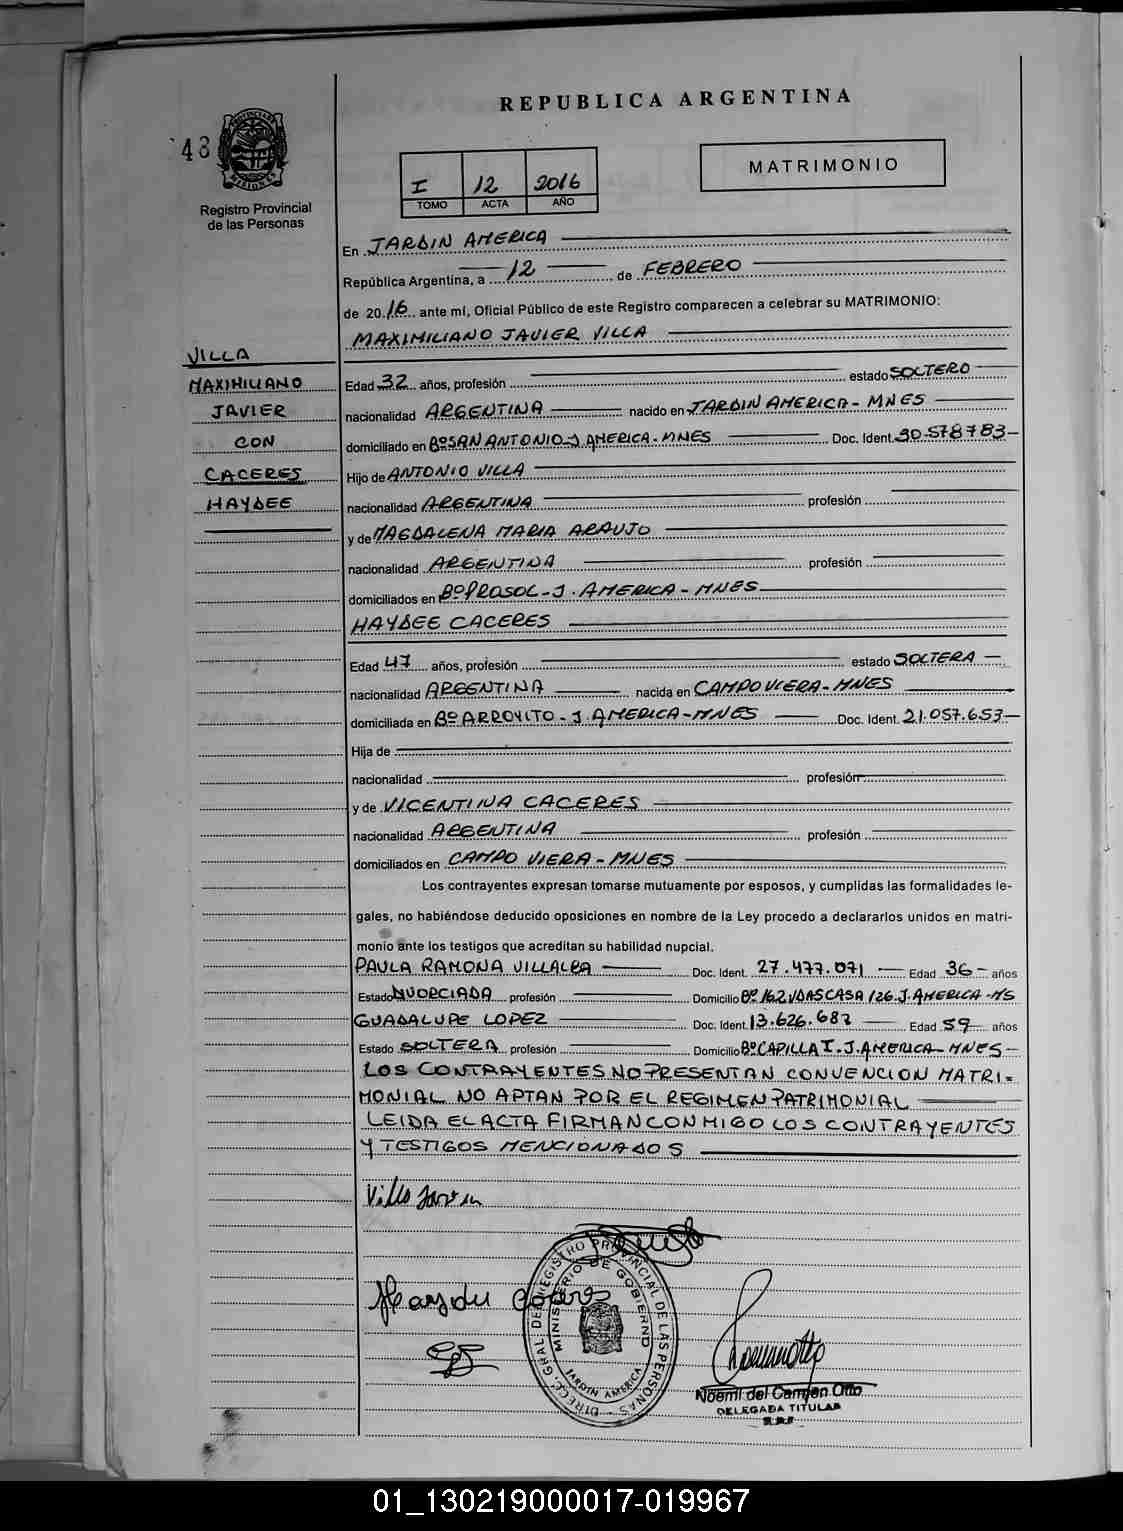 REPUBLICA ARGENTINA
48
PROVINCIA DE MISIONES
Registro Provincial
de las Personas
I 12 2016
TOMO ACTA AÑO
MATRIMONIO
En JARDIN AMERICA
República Argentina, a 12 de FEBRERO
de 2016 ante mí, Oficial Público de este Registro comparecen a celebrar su MATRIMONIO:
MAXIMILIANO JAVIER VILLA
VILLA
MAXIMILIANO
JAVIER
CON
CACERES
HAYDEE
Edad 32 años, profesión estado SOLTERO
nacionalidad ARGENTINA nacido en JARDIN AMERICA - MNES
domiciliado en Bº SAN ANTONIO-J. AMERICA - MNES Doc. Ident. 30.578783
Hijo de ANTONIO VILLA
nacionalidad ARGENTINA profesión
y de MAGDALENA MARIA ARAUJO
nacionalidad ARGENTINA profesión
domiciliados en Bº PROSOL - J. AMERICA - MNES
HAYDEE CACERES
Edad 47 años, profesión estado SOLTERA
nacionalidad ARGENTINA nacida en CAMPO VIERA - MNES
domiciliada en Bº ARROYITO - J. AMERICA - MNES Doc. Ident. 21.057.653
Hija de
nacionalidad profesión
y de VICENTINA CACERES
nacionalidad ARGENTINA profesión
domiciliados en CAMPO VIERA - MNES
Los contrayentes expresan tomarse mutuamente por esposos, y cumplidas las formalidades le-
gales, no habiéndose deducido oposiciones en nombre de la Ley procedo a declararlos unidos en matri-
monio ante los testigos que acreditan su habilidad nupcial.
PAULA RAMONA VILLALBA Doc. Ident. 27.477.071 Edad 36 años
Estado DIVORCIADA profesión Domicilio Bº 162 VDAS CASA 126. J. AMERICA - MS
GUADALUPE LOPEZ Doc. Ident. 13.626.687 Edad 59 años
Estado SOLTERA profesión Domicilio Bº CAPILLA I. J. AMERICA - MNES
LOS CONTRAYENTES NO PRESENTAN CONVENCION MATRI=
MONIAL NO APTAN POR EL REGIMEN PATRIMONIAL
LEIDA EL ACTA FIRMAN CONMIGO LOS CONTRAYENTES
Y TESTIGOS MENCIONADOS
Villa Javier
Haydee Caceres
DIRECC. GRAL DEL REGISTRO PROVINCIAL DE LAS PERSONAS
MINISTERIO DE GOBIERNO
JARDIN AMERICA
Noemi del Carmen Otto
DELEGADA TITULAR
01_130219000017-019967